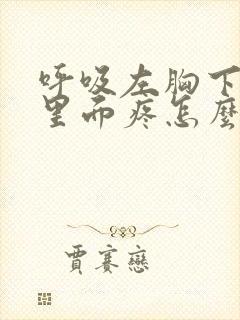 呼吸左胸下
里面疼怎麼
賈賽戀